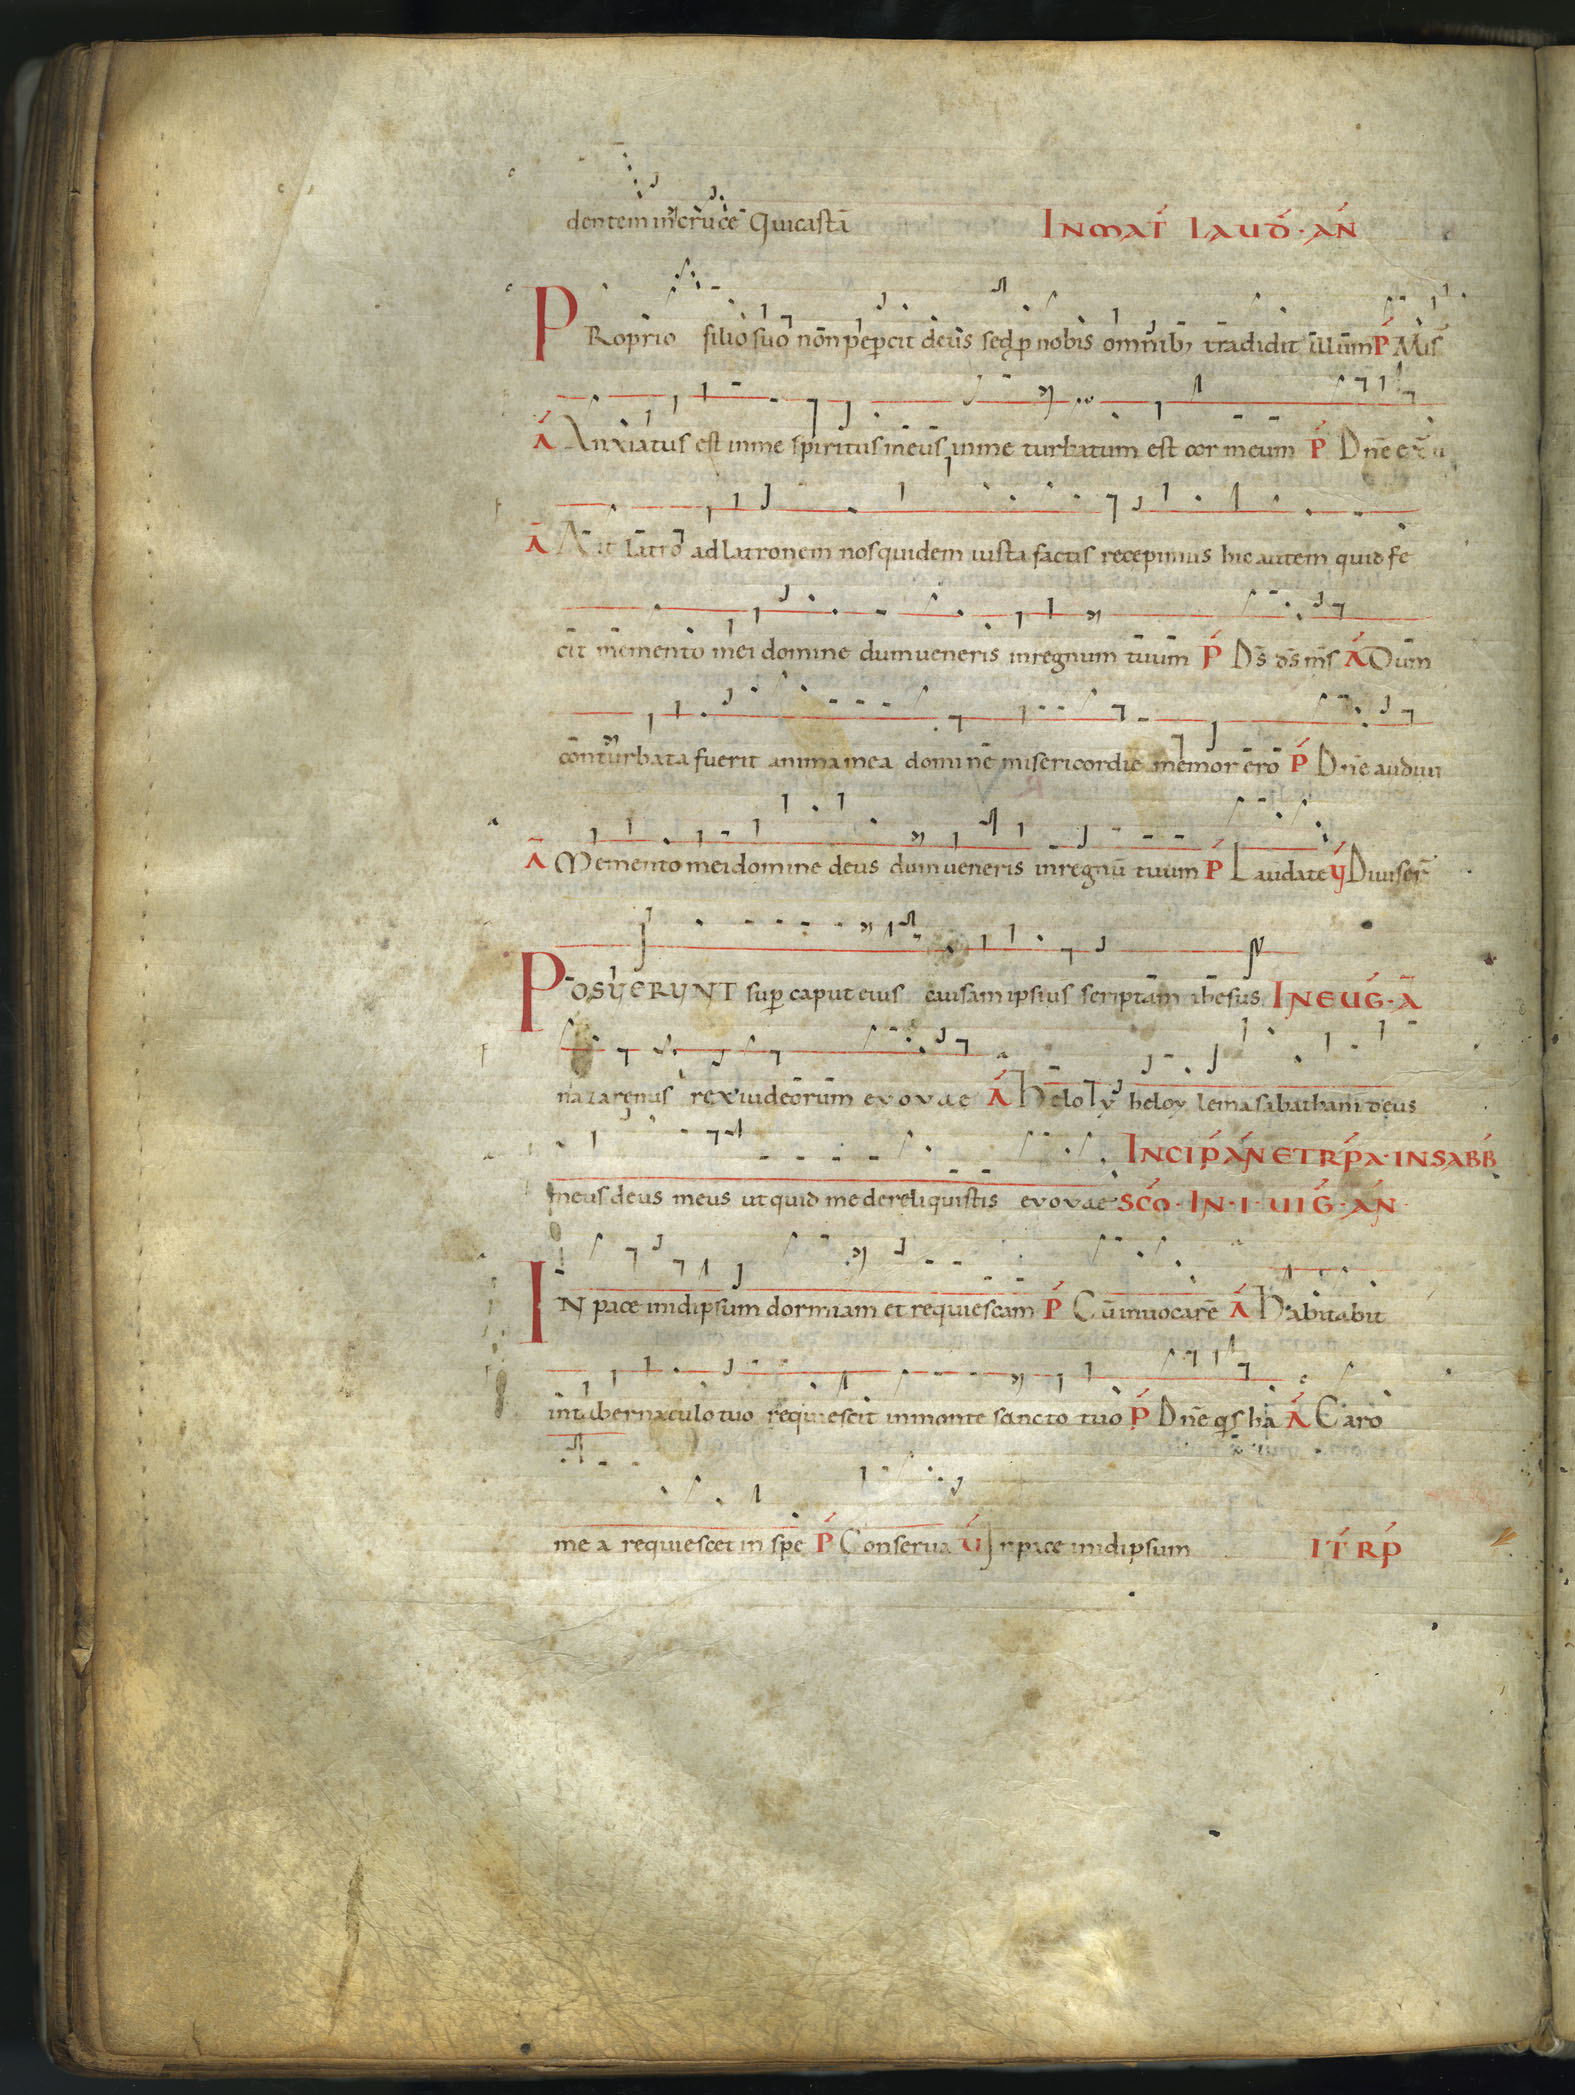 dentem in cruce Qui castā IN MAT LAUD · AN
PRoprio filio suo non pepcit deus sed p nobis omnib; tradidit illum P Mis
A Anxiatus est in me spiritus meus in me turbatum est cor meum P Dne exau
A Ait latro ad latronem nos quidem iusta factis recepimus hic autem quid fe
cit memento mei domine dum ueneris in regnum tuum P Ds ds ms A Dum
conturbata fuerit anima mea domine misericordie memor ero P Dne audiui
A Memento mei domine deus dum ueneris in regnū tuum P Laudate V Diuiser
POSUERUNT sup caput eius causam ipsius scriptam ihesus IN EUG · A
nazarenus rex iudeorum evovae A Heloy heloy lema sabathani deus
meus deus meus ut quid me dereliquistis evovae INCIP AN ET RPA · IN SABB
SCO · IN · I · UIG · AN
IN pace in idipsum dormiam et requiescam P Cū inuocare A Habitabit
in tabernaculo tuo requiescit in monte sancto tuo P Dne qis ha A Caro
mea requiescet in spe P Conserua V In pace in idipsum IT RP